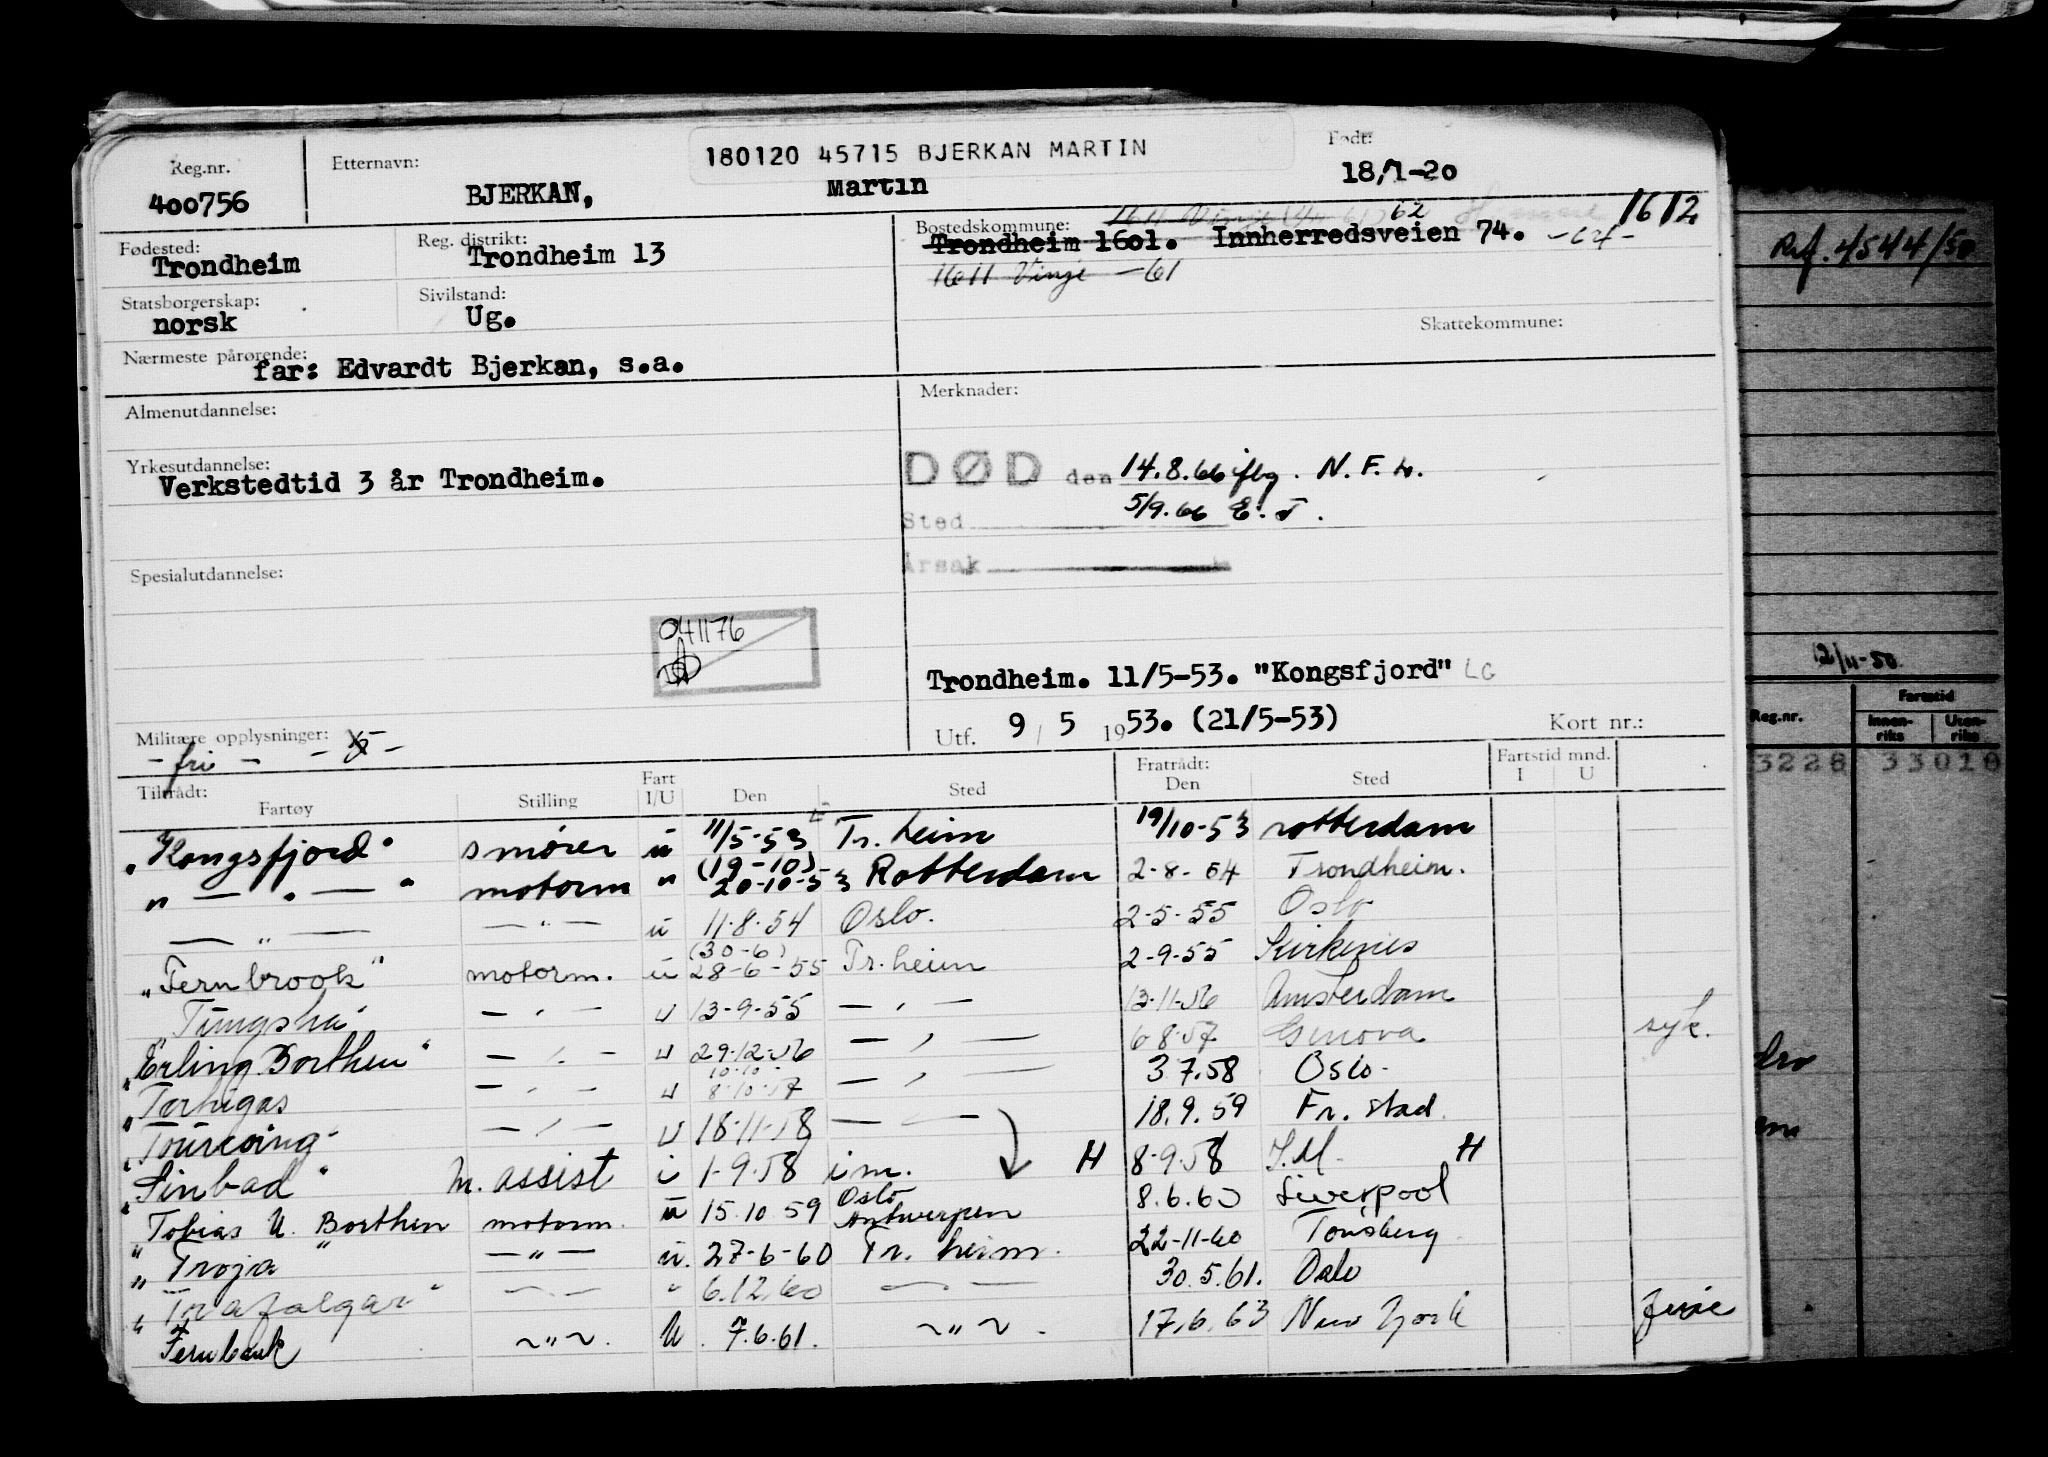 180120 45715 BJERKAN MARTIN
Reg.nr. Etternavn: Født:
400756 BJERKAN, Martin 18/1-20
Fødested: Reg. distrikt: Bostedskommune: 62 1612
Trondheim Trondheim 13 Trondheim 1601. Innherredsveien 74. -64-
1611 Vinje -61
Statsborgerskap: Sivilstand:
norsk Ug.
Skattekommune:
Nærmeste pårørende:
far: Edvardt Bjerkan, s.a.
Almenutdannelse: Merknader:
Yrkesutdannelse:
Verkstedtid 3 år Trondheim.
DØD den 14.8.66 ifbg. N.F.
Sted 5/9.66 E.T.
Årsak
Spesialutdannelse:
041176
Trondheim. 11/5-53. "Kongsfjord" LG
Utf. 9 / 5 1953. (21/5-53) Kort nr.:
Militære opplysninger:
- fri -
Tiltrådt: Fratrådt: Fartstid mnd.
Fartøy Stilling Fart I/U Den Sted Den Sted I U
"Kongsfjord" smører u 11/5-53 Tr.heim 19/10-53 rotterdam
" — " — " motorm " (19-10) 20-10-53 Rotterdam 2-8-54 Trondheim.
— " — — " — u 11-8-54 Oslo. 2-5-55 Oslo
"Fernbrook" motorm. u (30-6) 28-6-55 Tr.heim 2-9-55 Kirkenes
"Tungsha" — " — u 13-9-55 — " — 13-11-56 Amsterdam
"Erling Borthen" — " — u 29-12-56 — " — 6-8-57 Genova syk.
"Torhigas — " — u 10-10- 8-10-57 — " — 3.7.58 Oslo.
"Tourcoing" — " — u 18-11-58 — " — 18.9.59 Fr.stad
"Sinbad" M. assist i 1-9-58 i m. H 8-9-58 I.M. H
"Tobias U. Borthen motorm. u 15.10.59 Oslo Antwerpen 8.6.60 Liverpool
"Troja" — " — u. 27-6-60 Tr. heim. 22-11-60 Tønsberg
"Trafalgar" — " — " 6.12.60 — — 30.5.61. Oslo
Fernbank ~ " ~. U. 7.6.61. ~ " ~. 17.6.63 New York ferie
Ref. 4544/50
12/11-50
Reg.nr. Fartstid
Innen-riks Uten-riks
3228 33010